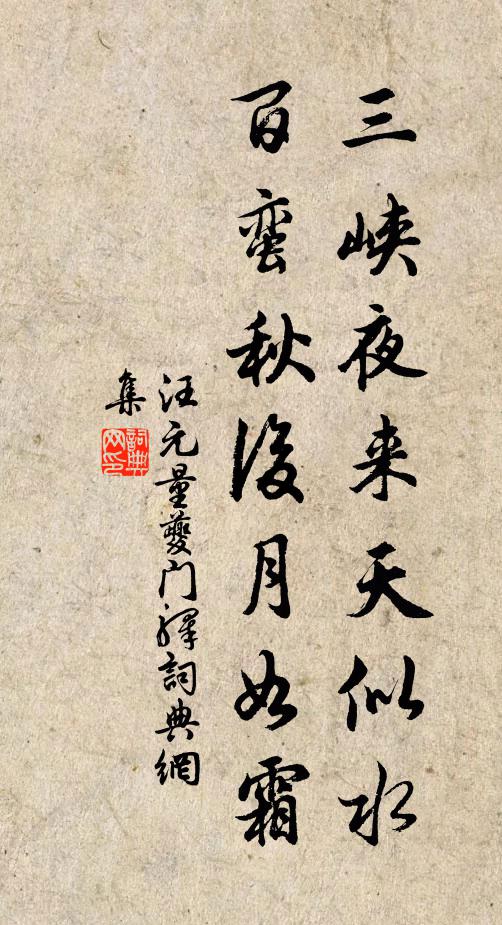 三峡夜来天似水
百蛮秋后月如霜
汪元量夔门驿詞典網
集
詞典
网印